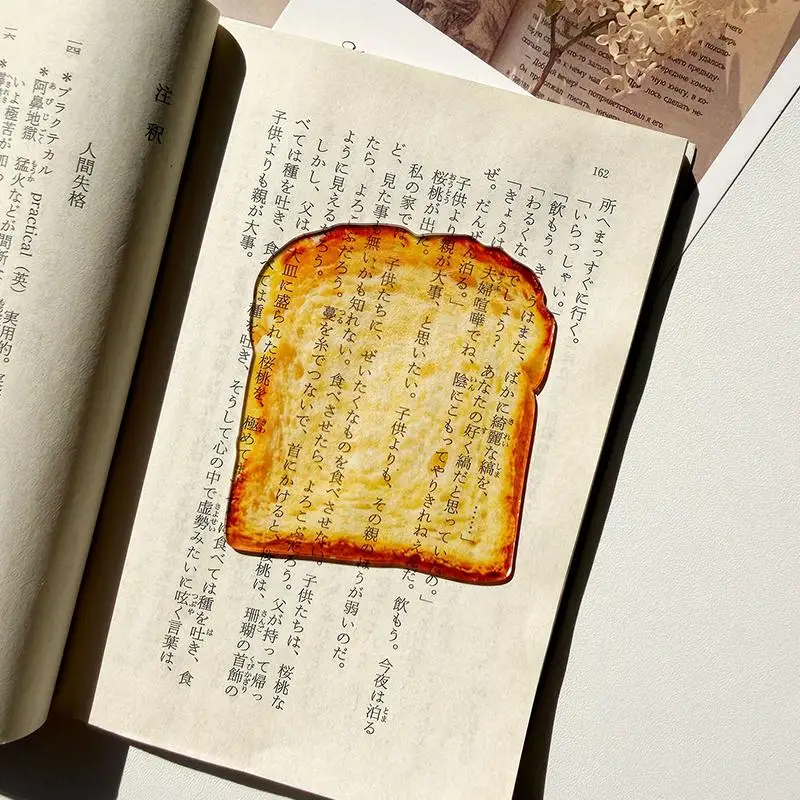 162
所へまっすぐに行く。
「いらっしゃい。」
「飲もう。きょうはまた、ばかに綺麗な縞を、……」
「わるくないでしょう? あなたの好く縞だと思っていたの。」
「きょうは、夫婦喧嘩でね、陰にこもってやりきれねえんだ。飲もう。今夜は泊る
ぜ。だんぜん泊る。」
子供より親が大事、と思いたい。子供よりも、その親のほうが弱いのだ。
桜桃が出た。
私の家では、子供たちに、ぜいたくなものを食べさせない。子供たちは、桜桃な
ど、見た事も無いかも知れない。食べさせたら、よろこぶだろう。父が持って帰っ
たら、よろこぶだろう。蔓を糸でつないで、首にかけると、桜桃は、珊瑚の首飾の
ように見えるだろう。
しかし、父は、大皿に盛られた桜桃を、極めて に食べては種を吐き、食
べては種を吐き、食べては種を吐き、そうして心の中で虚勢みたいに呟く言葉は、
子供よりも親が大事。
注釈
人間失格
一四 *プラクテカル practical(英) 実用的。
*阿鼻地獄 猛火などが間断
いよ極苦が加
一六
— Добрый вечер! — приветствовал я его.
Он продолжал писать,